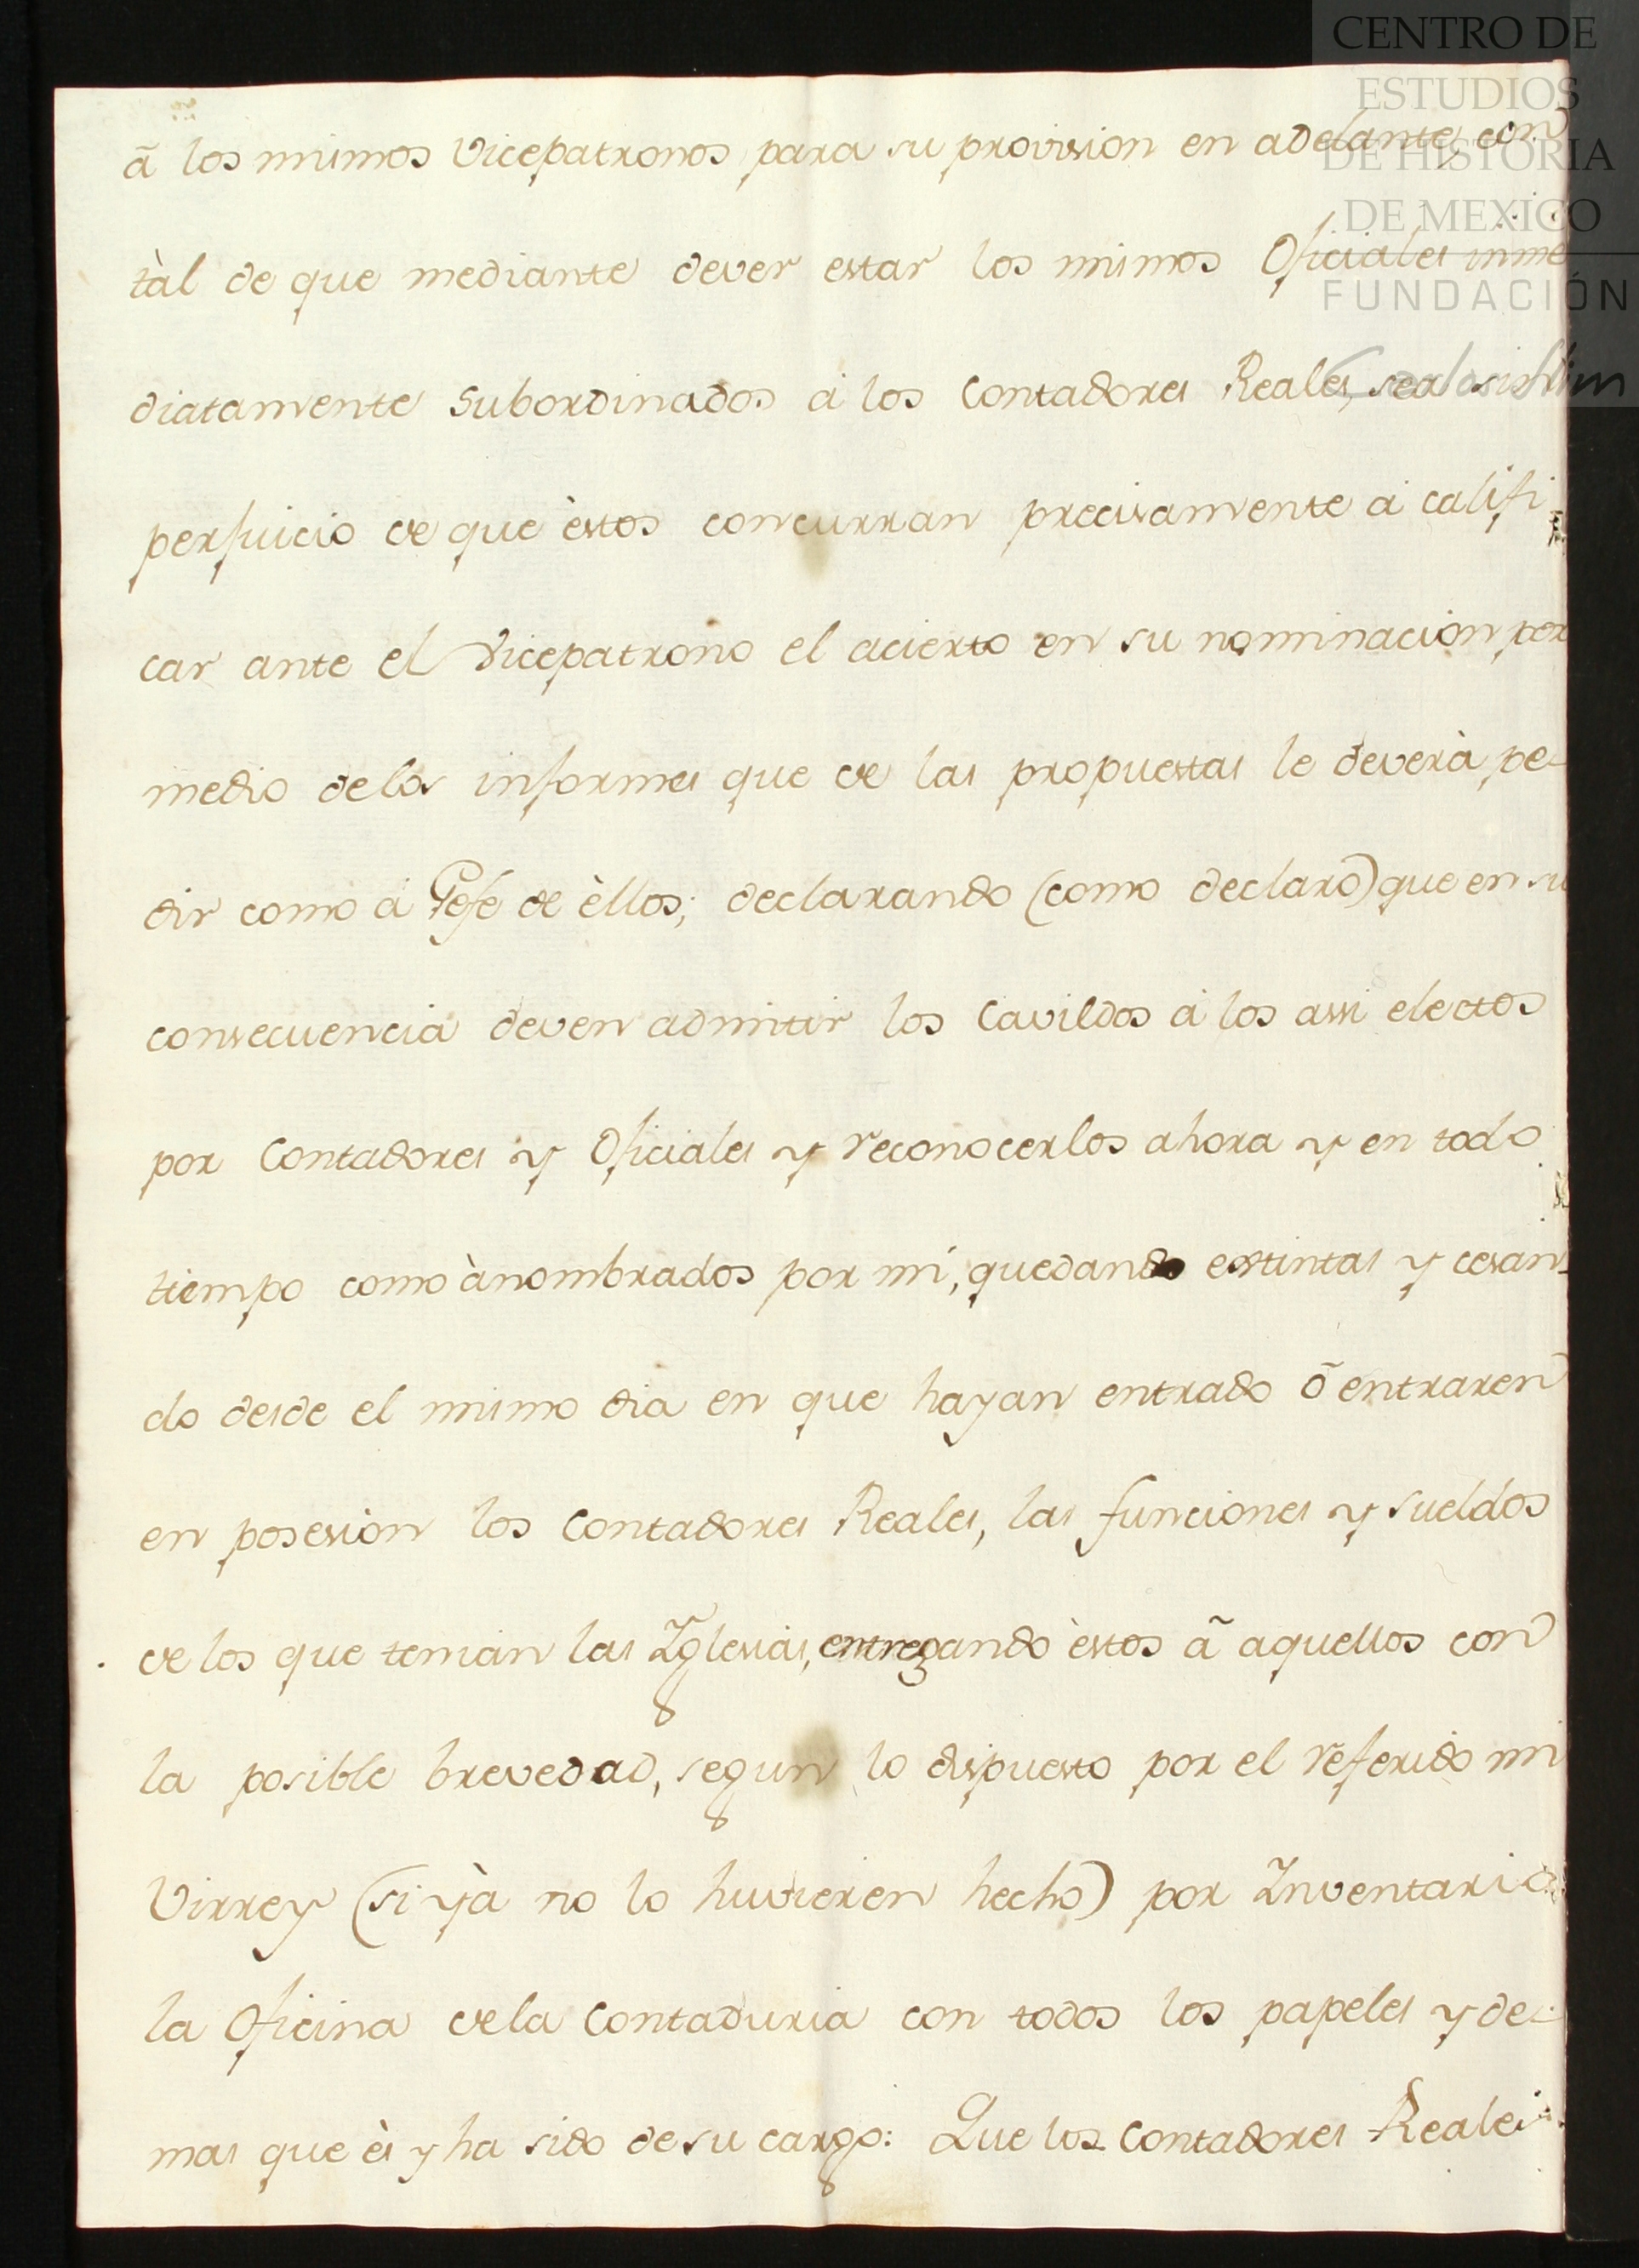 CENTRO DE
ESTUDIOS
DE HISTORIA
DE MEXICO
FUNDACIÓN
ã los mismos Vicepatronos para su provision en adelante, con
tàl de que mediante dever estar los mismos Oficiales inme
diatamente subordinados à los Contadores Reales, sea sin
perjuicio de que èstos concurran precisamente à califi
car ante el Vicepatrono el acierto en su nominacion por
medio delos informes que de las propuestas le deverà pe-
dir como à Gefe de èllos; declarando (como declaro) que en su
consecuencia deven admitir los Cavildos à los assi electos
por Contadores y Oficiales y reconocerlos ahora y en todo
tiempo como à nombrados por mi, quedando extintas y cesan-
do desde el mismo dia en que hayan entrado õ entraren
en posesion los Contadores Reales, las funciones y sueldos
de los que tenian las Yglesias, entregando èstos ã aquellos con
la posible brevedad, segun lo dispuesto por el referido mi
Virrey (si yà no lo huvieren hecho) por Inventario
la Oficina dela Contaduria con todos los papeles y de-
mas que ès y ha sido de su cargo: Que los Contadores Reales